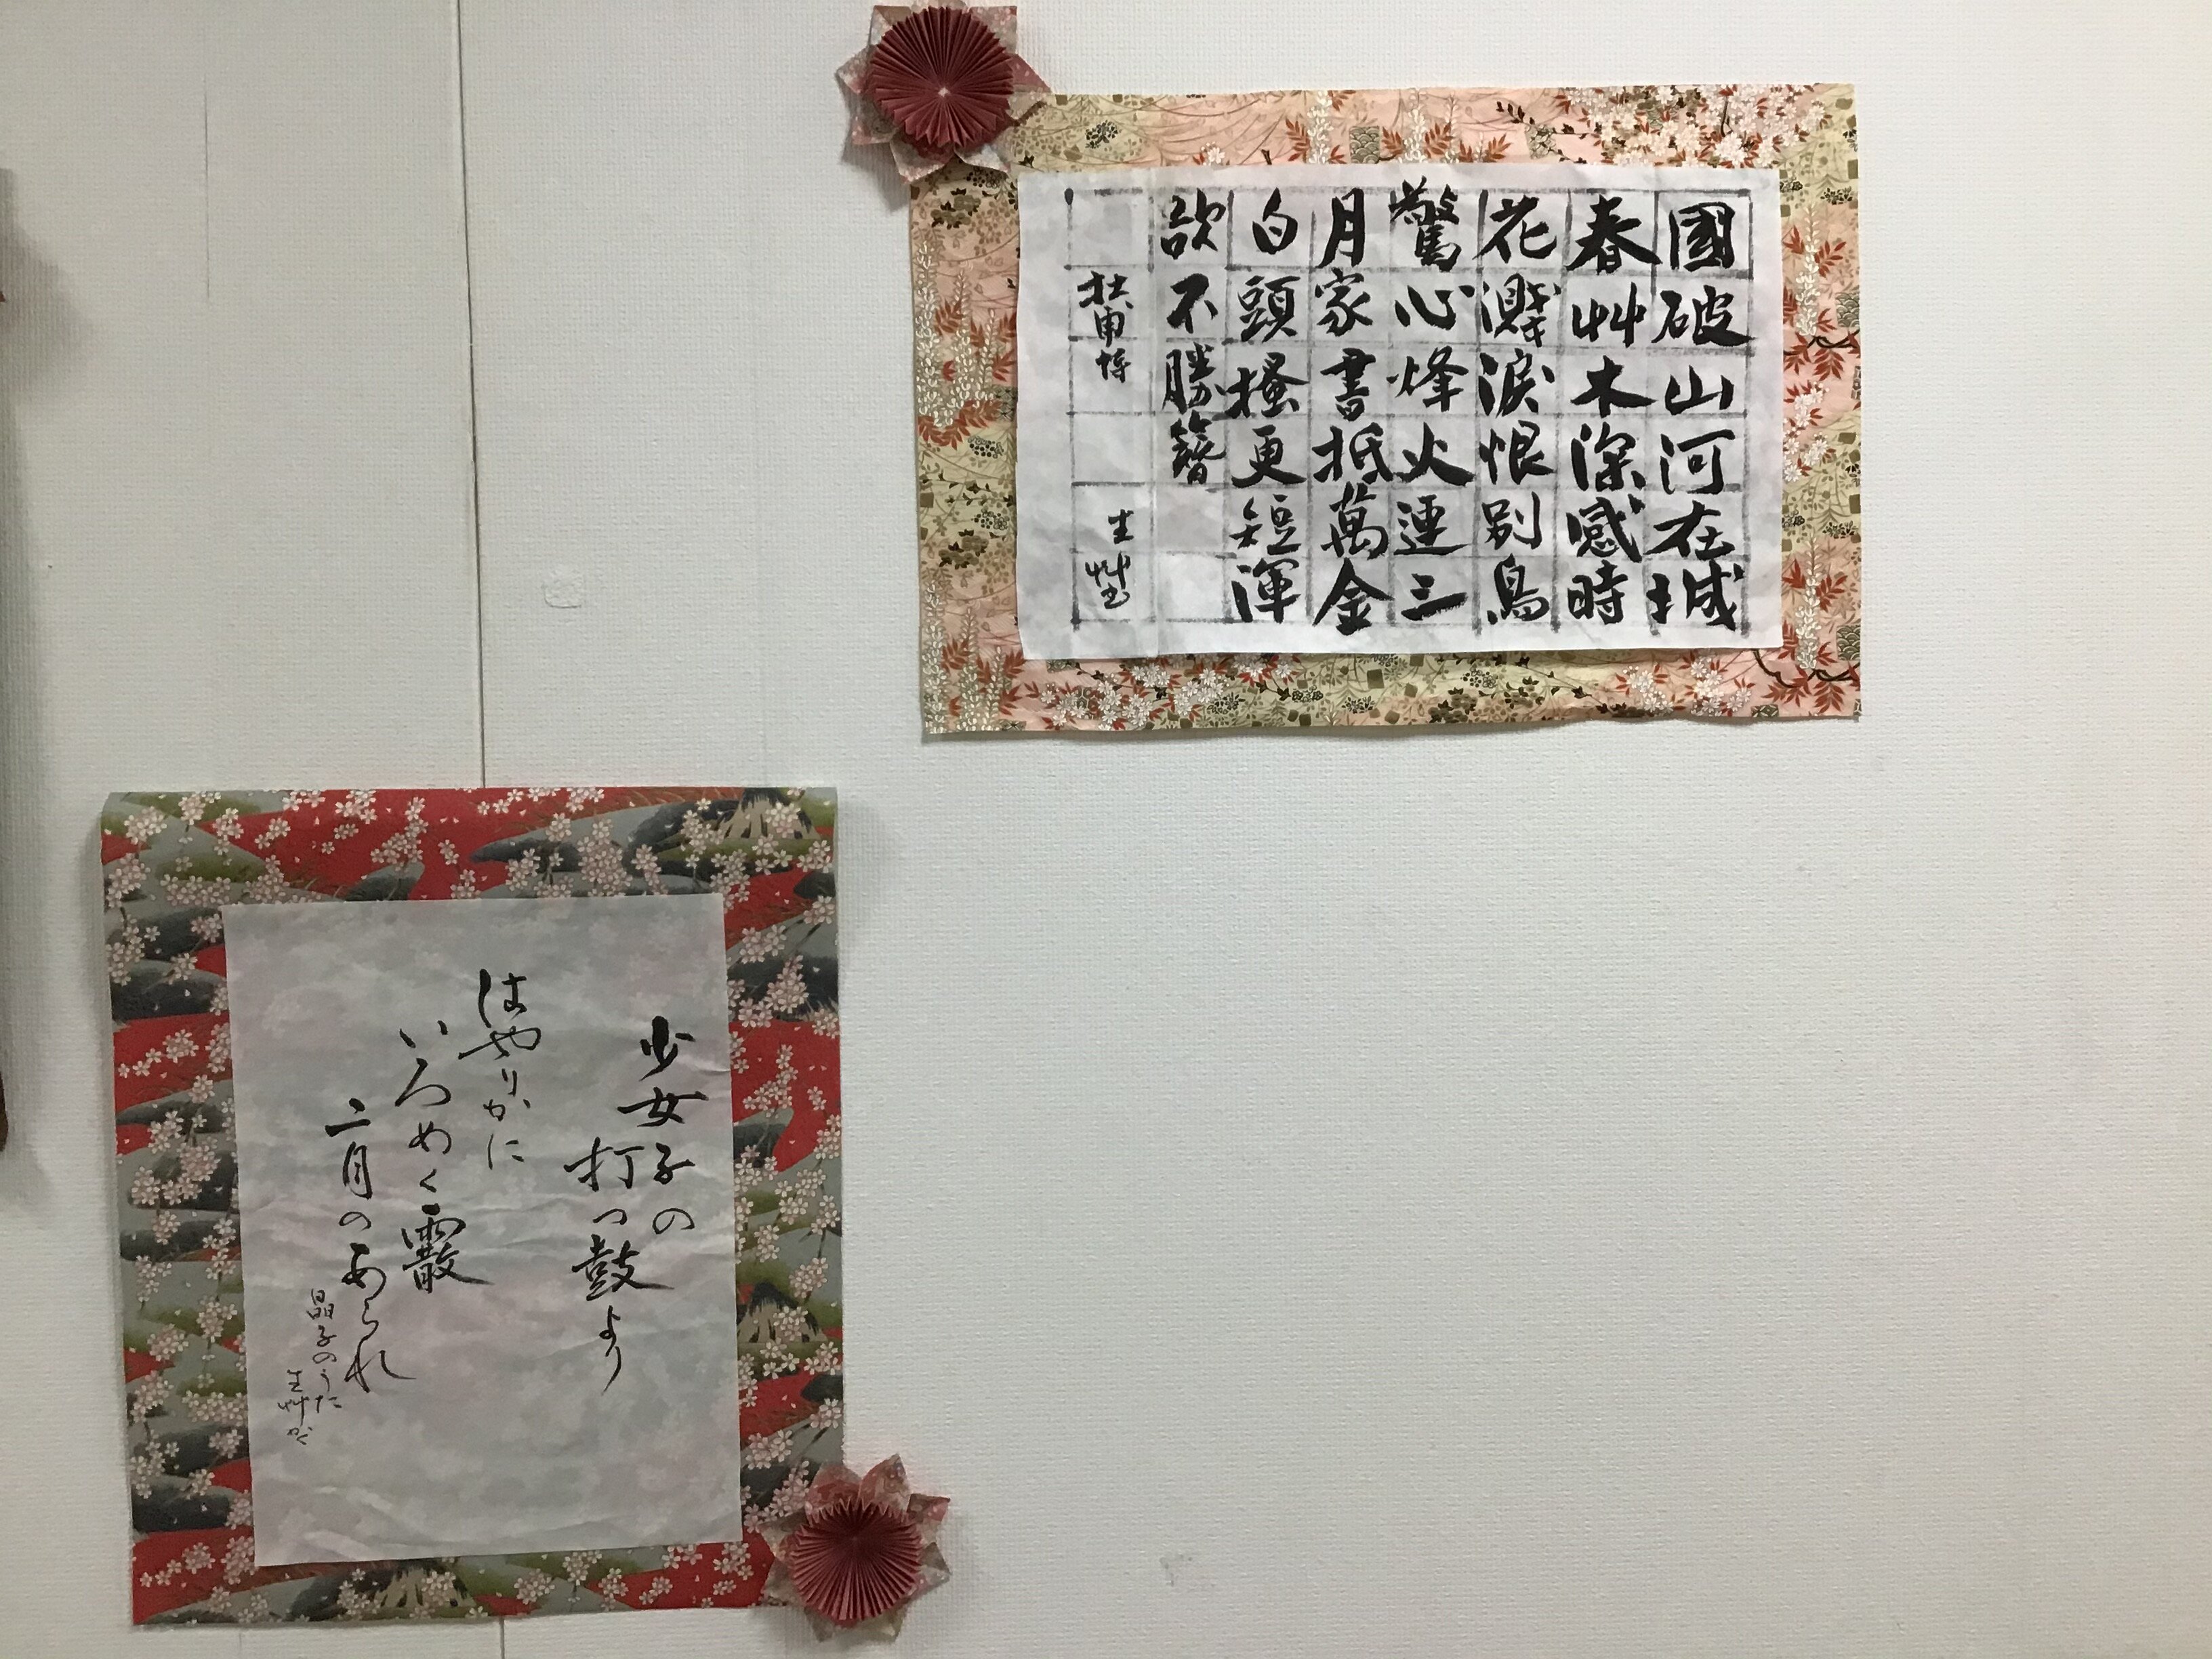 國破山河在城
春艸木深感時
花濺淚恨別鳥
驚心烽火連三
月家書抵萬金
白頭搔更短渾
欲不勝簪
杜甫詩
生艸
少女子の
打つ鼓より
はやりかに
いろめく霰
二月のあられ
晶子のうた
生艸かく